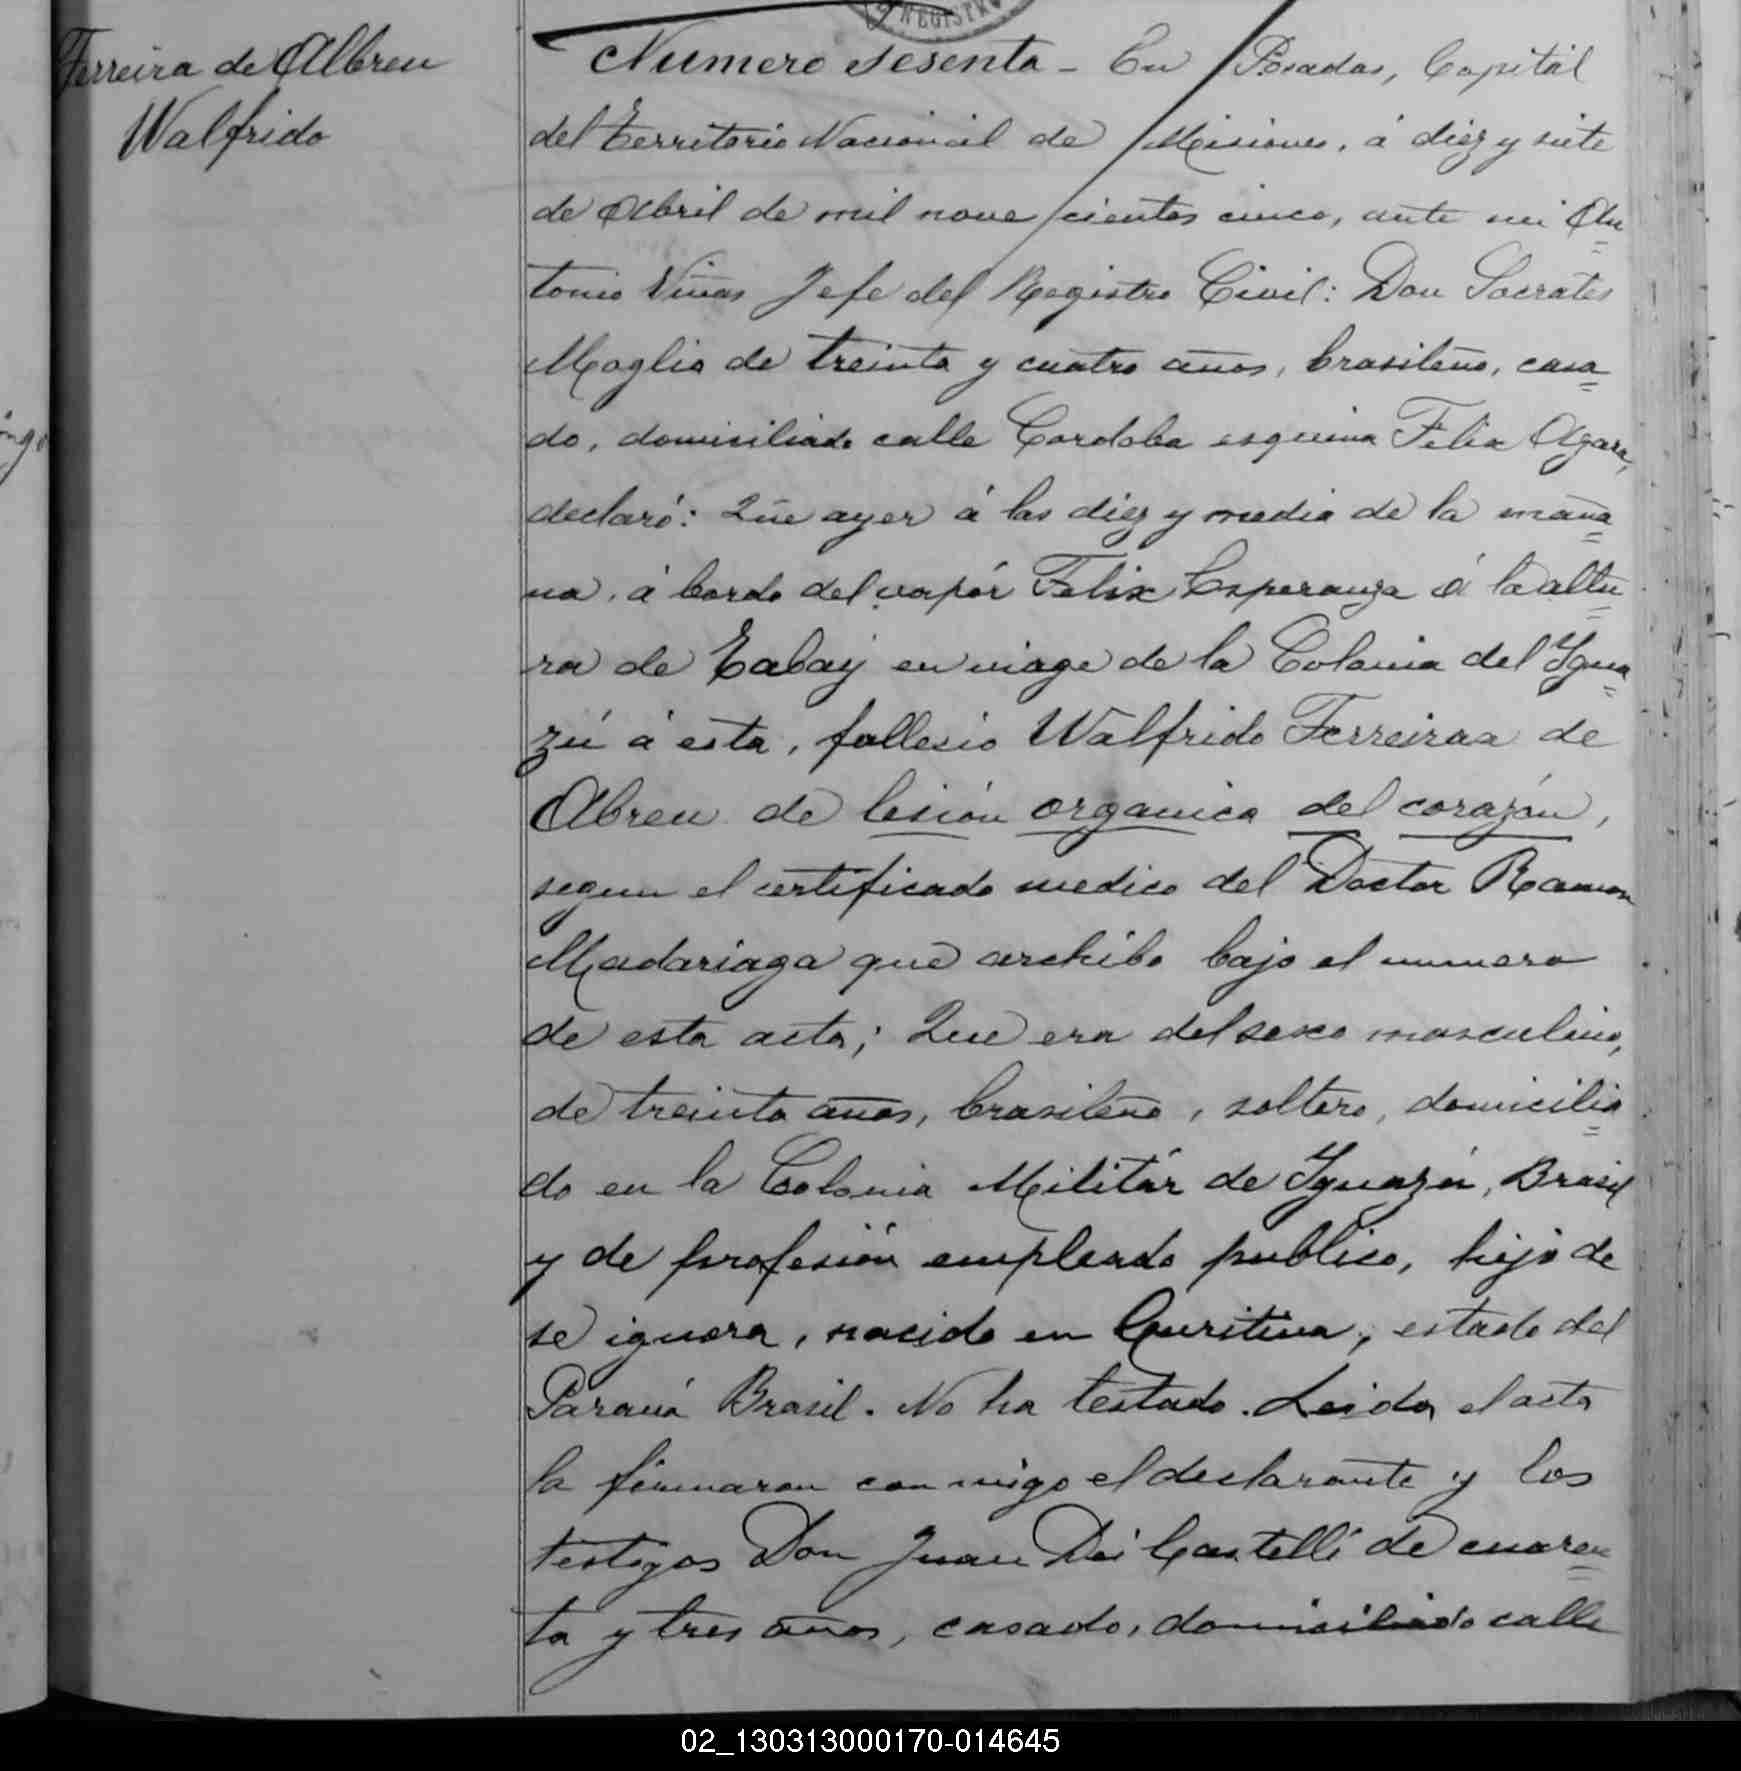 REGISTRO
Ferreira de Albreu
Walfrido
Numero sesenta - En Posadas, Capitál
del Territorio Nacionál de Misiones, á diez y siete
de Abril de mil nove cientos cinco, ante mi An
tonio Viñas Jefe del Registro Civil: Don Socrates
Moglia de treinta y cuatro años, brasileño, casa
do, domisiliado calle Cordoba esquina Felix Azara,
declaró: Que ayer á las diez y media de la maña
na, á bordo del vapór Felix Esperanza á la altu
ra de Tabay en viage de la Colonia del Igua
zú á esta, fallesio Walfrido Ferreiraa de
Abreu de lesión organica del corazón,
segun el certificado medico del Doctor Ramon
Madariaga que archibo bajo el numero
de esta acta; Que era del sexo masculino,
de treinta años, brasileño, soltero, domicilia
do en la Colonia Militár de Iguazú, Brasil
y de profesión empleado publico, hijo de
se ignora, nacido en Curitiva, estado del
Paraná Brasil. No ha testado. Leida el acta
la firmaron con migo el declarante y los
testigos Don Juan Dei Castelli de cuaren
ta y tres años, casado, domisiliado calle
02_130313000170-014645